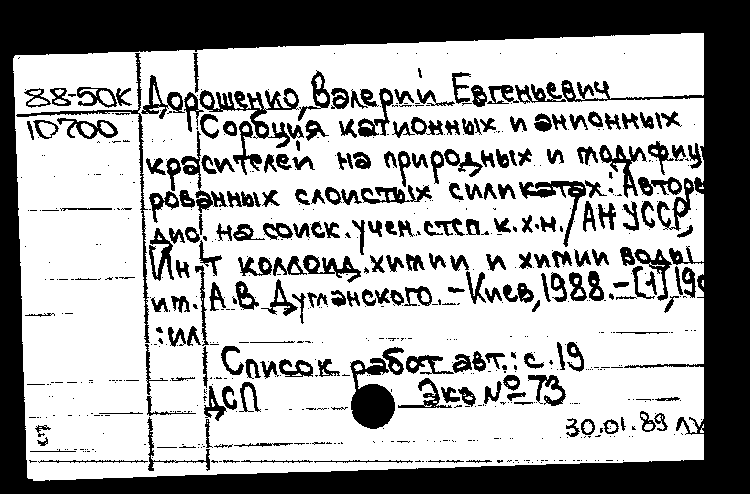 88-50К Дорошенко, Валерий Евгеньевич
10700 Сорбция катионных и анионных
красителей на природных и модифици
рованных слоистых силикатах: Авторе
дис. на соиск. учен. степ. к.х.н. / АН УССР,
Ин-т коллоид. химии и химии воды
им. А.В. Думанского. - Киев, 1988. - [1], 19с
: ил
Список работ авт.: с. 19
ДСП Экз № 73
5 30.01.89